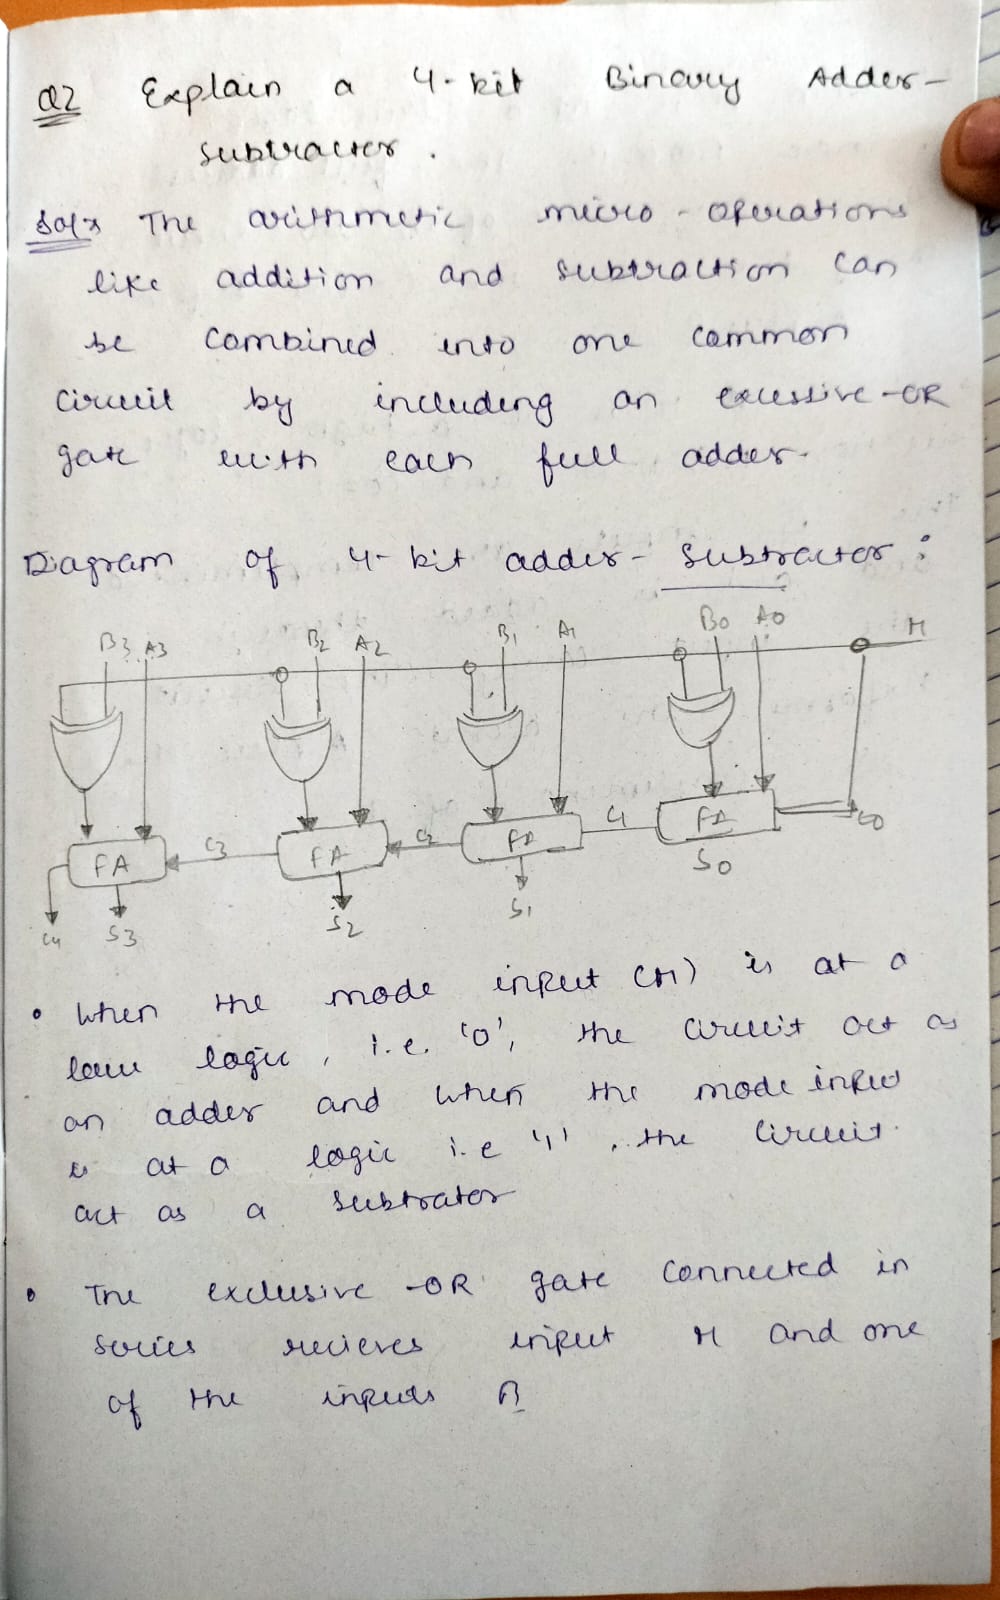 Q2 Explain a 4-bit Binary Adder-
subtractor.
Soln The arithmetic micro-operations
like addition and subtraction can
be combined into one common
circuit by including an exclessive-OR
gate with each full adder.
Diagram of 4-bit adder-subtractor:
B3 A3 B2 A2 B1 A1 B0 A0 M
FA C3 FA C2 FA C1 FA C0
C4 S3 S2 S1 S0
• When the mode input (M) is at a
low logic, i.e. '0', the circuit act as
an adder and when the mode input
is at a logic i.e '1', the circuit
act as a subtrator
• The exclusive-OR gate connected in
series recieves input M and one
of the inputs B